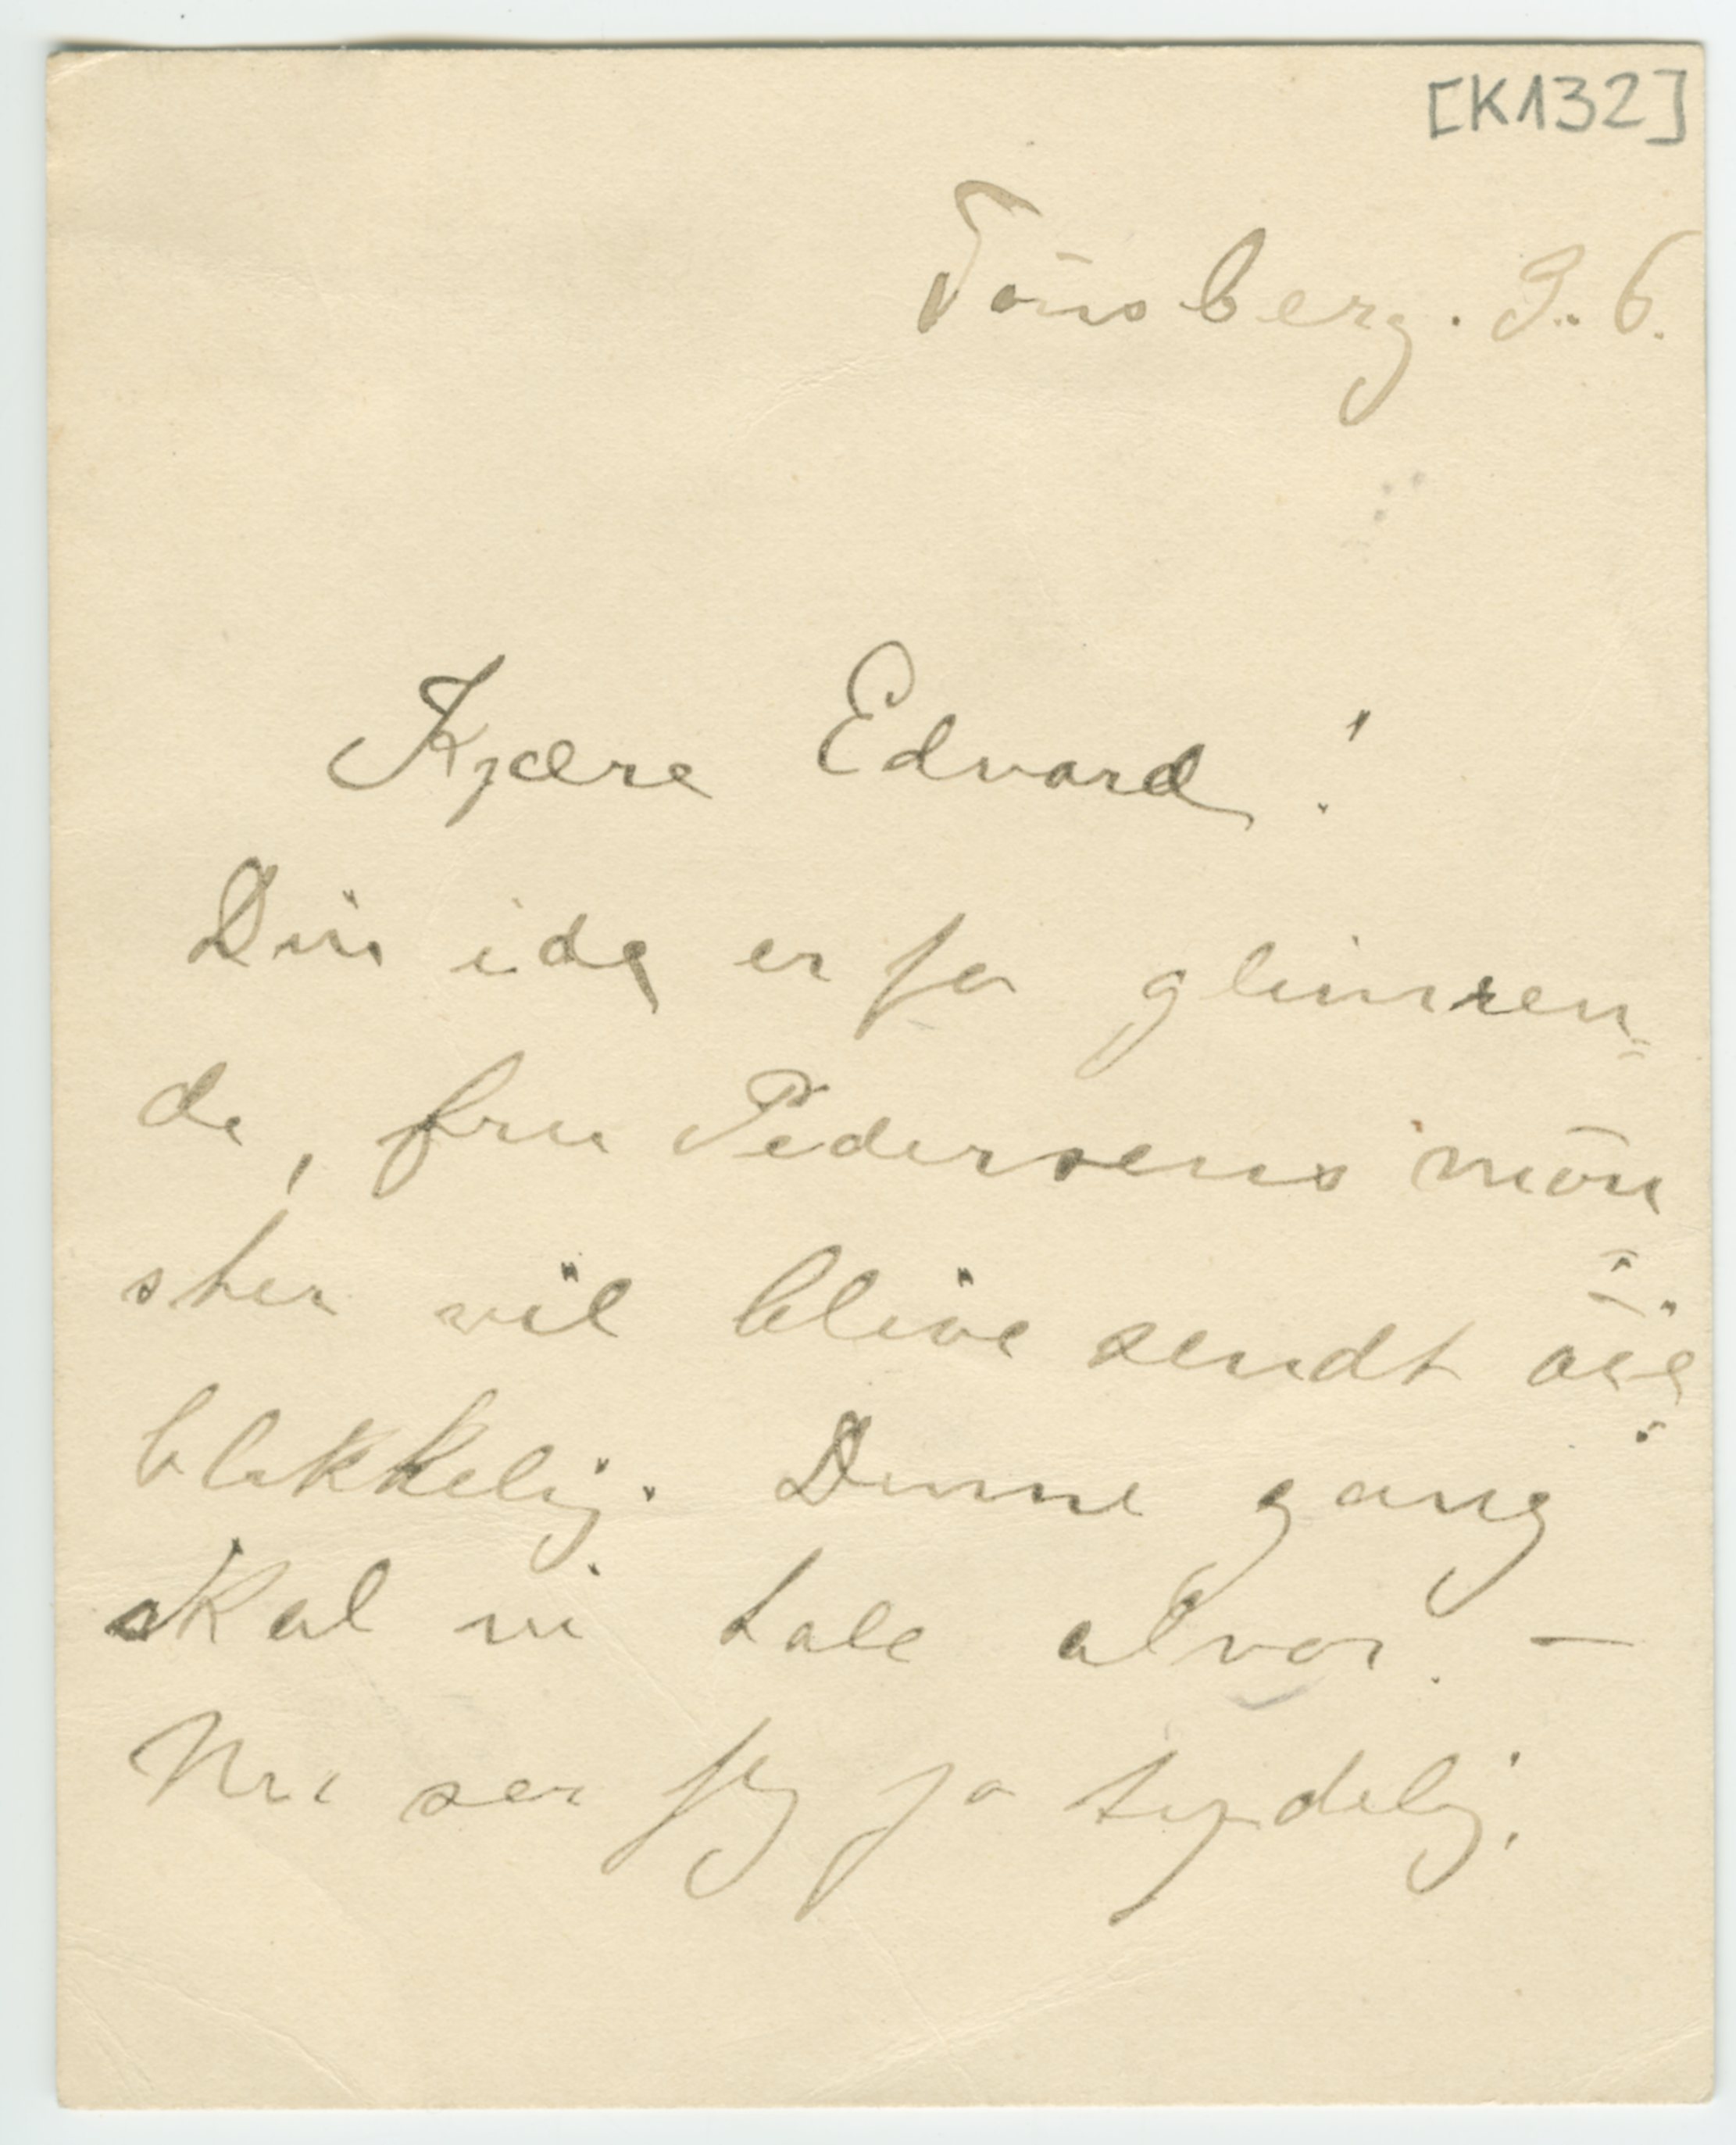 [K132]
Tönsberg. 9. 6.
Kjære Edvard!
Din ide er jo glimren-
de, fru Pedersens mön-
ster vil blive sendt öie-
blikkelig. Denne gang
skal vi tale alvor. –
Nu ser jeg jo tydelig,